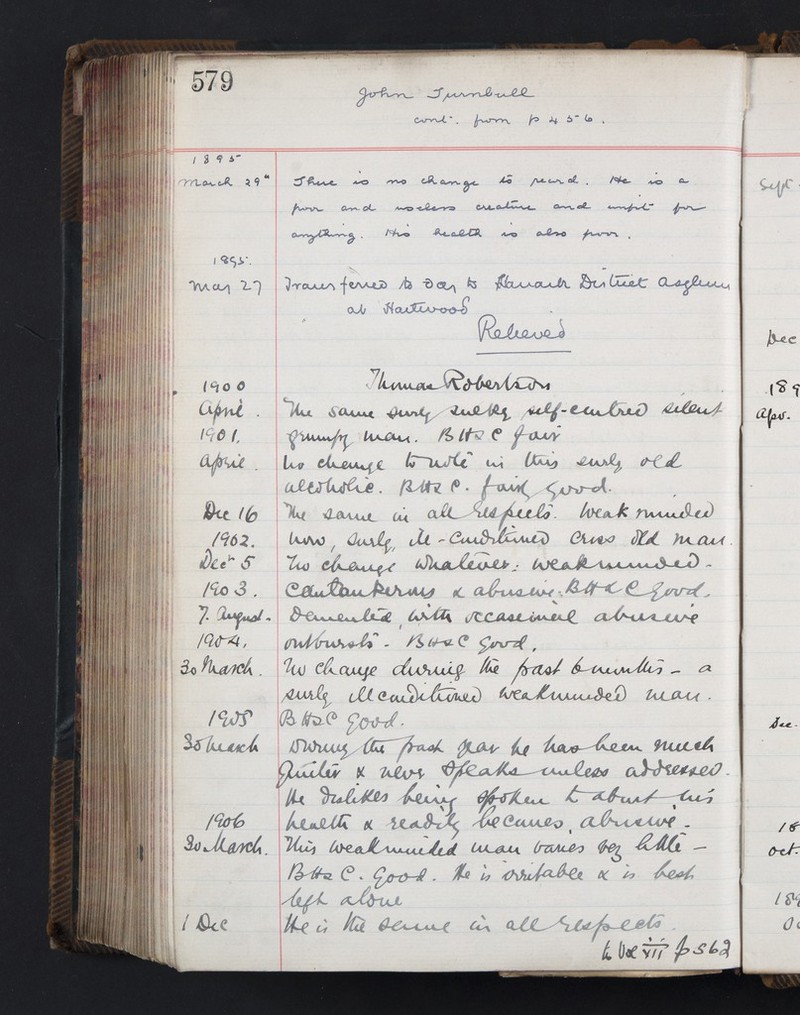 579
John Turnbull
cont. from p 456.
1895
March 29th There is no change to record. He is a
poor and useless creature and unfit for
anything. His health is also poor.
1895.
May 27 Transferred to day to Lanark District Asylum
at Hartwood
Relieved
1900 Thomas Robertson
April. The same surly sulky self-centred silent
1901. grumpy man. BH&C fair
April. No change to note in this surly old
alcoholic. BH&C. fairly good.
Dec 16 The same in all respects. Weak minded
1902. now, surly, ill-conditioned cross old man.
Decr 5 No change whatever: weakminded.
1903. Cantankerous & abusive: BH&C Good.
7. August. Demented, with occasional abusive
1904. outbursts - BH&C Good.
30 March. No change during the past 6 months - a
surly illconditioned weakminded man.
1905 BH&C Good.
30 March During the past year he has been much
Quieter & never speaks unless addressed.
He dislikes being spoken to about his
1906 health & readily becomes abusive.
30 March. This weakminded man varies very little -
BH&C. Good. He is irritable & is best
left alone
1 Dec He is the same in all respects.
to Vol XII p562
Sept.
Dec
189
Apr.
Dec.
18
Oct.
189